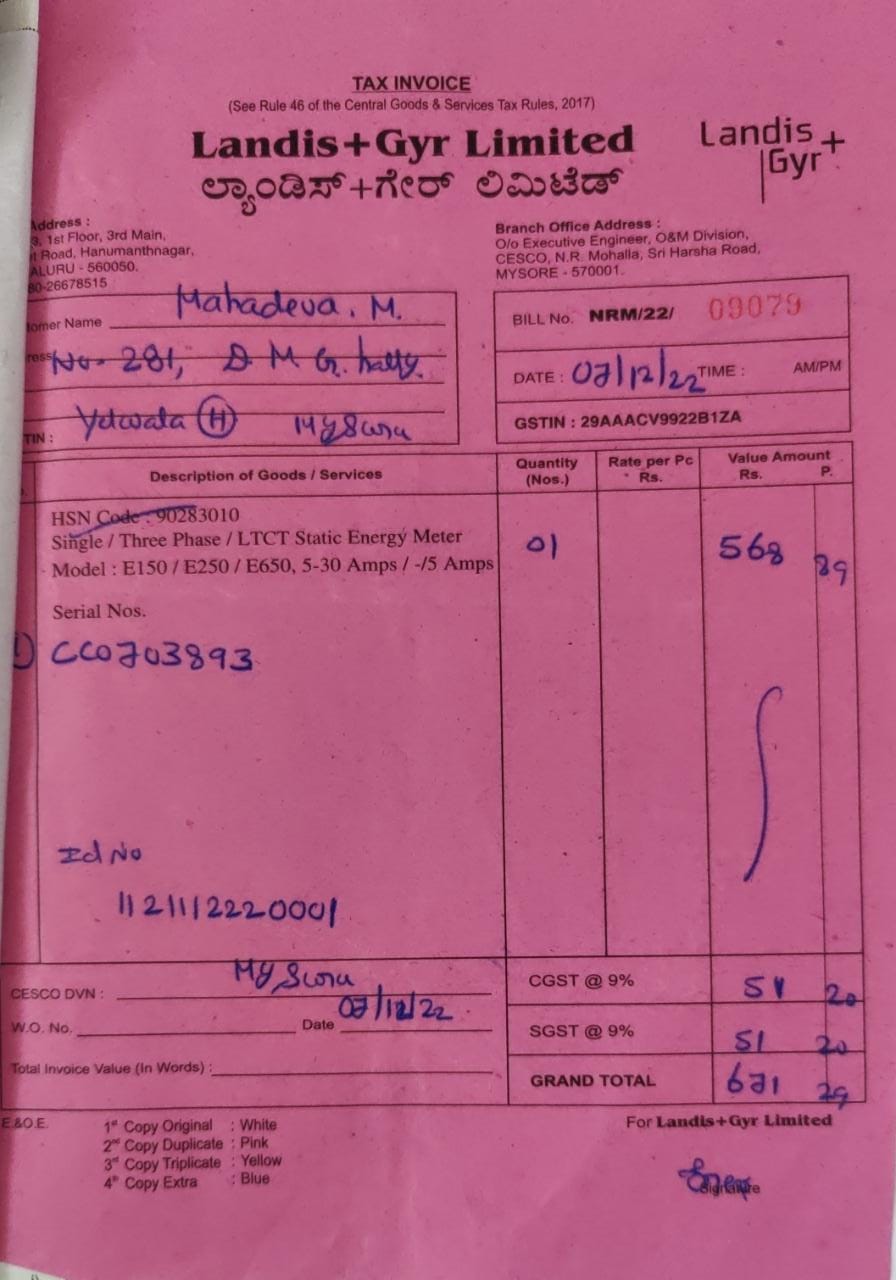 TAX INVOICE
(See Rule 46 of the Central Goods & Services Tax Rules, 2017)
Landis+Gyr Limited
ಲ್ಯಾಂಡಿಸ್+ಗೇರ್ ಲಿಮಿಟೆಡ್
Landis+
Gyr+
Address :
3, 1st Floor, 3rd Main,
t Road, Hanumanthnagar,
ALURU - 560050.
80-26678515
Branch Office Address :
O/o Executive Engineer, O&M Division,
CESCO, N.R. Mohalla, Sri Harsha Road,
MYSORE - 570001.
tomer Name Mahadeva. M.
ress No- 281, D M G. hatty.
Ydwala (H) Mysuru
TIN :
BILL No. NRM/22/ 09079
DATE : 07/12/22 TIME : AM/PM
GSTIN : 29AAACV9922B1ZA
Description of Goods / Services Quantity (Nos.) Rate per Pc Rs. Value Amount Rs. P.
HSN Code : 90283010
Single / Three Phase / LTCT Static Energy Meter 01 568 89
Model : E150 / E250 / E650, 5-30 Amps / -/5 Amps
Serial Nos.
1) CC0703893
Id No
1121112220001
CESCO DVN : Mysuru
W.O. No. Date 07/12/22
Total Invoice Value (In Words) :
CGST @ 9% 51 20
SGST @ 9% 51 20
GRAND TOTAL 671 29
E.&O.E.
1st Copy Original : White
2nd Copy Duplicate : Pink
3rd Copy Triplicate : Yellow
4th Copy Extra : Blue
For Landis+Gyr Limited
Signature